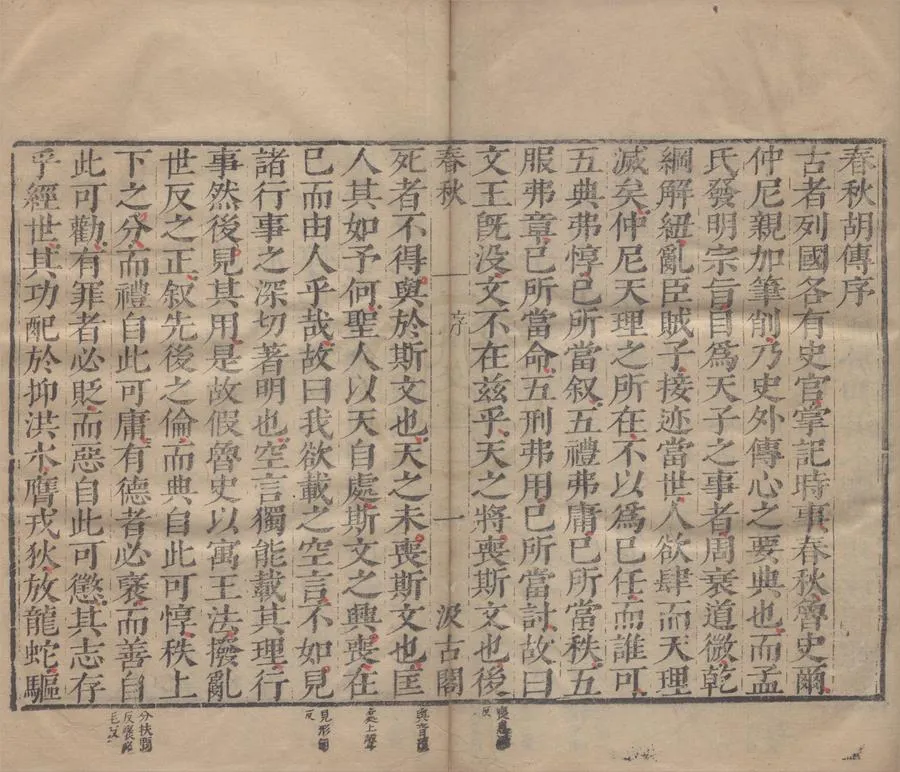 春秋胡傳序
古者列國各有史官掌記時事春秋魯史爾
仲尼親加筆削乃史外傳心之要典也而孟
氏發明宗旨目爲天子之事者周衰道微乾
綱解紐亂臣賊子接迹當世人欲肆而天理
滅矣仲尼天理之所在不以爲已任而誰可
五典弗惇已所當叙五禮弗庸已所當秩五
服弗章已所當命五刑弗用已所當討故曰
文王旣没文不在兹乎天之將喪斯文也後
春秋 序 一 汲古閣
死者不得與於斯文也天之未喪斯文也匡
人其如予何聖人以天自處斯文之興喪在
已而由人乎哉故曰我欲載之空言不如見
諸行事之深切著明也空言獨能載其理行
事然後見其用是故假魯史以寓王法撥亂
世反之正叙先後之倫而典自此可惇秩上
下之分而禮自此可庸有德者必褒而善自
此可勸有罪者必貶而惡自此可懲其志存
乎經世其功配於抑洪水膺戎狄放龍蛇驅
與音
處上聲
見形
反
分扶問
反
毛反